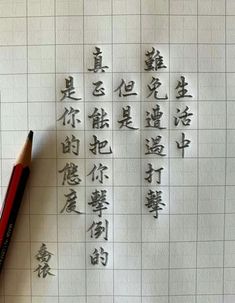 生活中
難免遭遇打擊
但是
真正能把你擊倒的
是你的態度
喬依